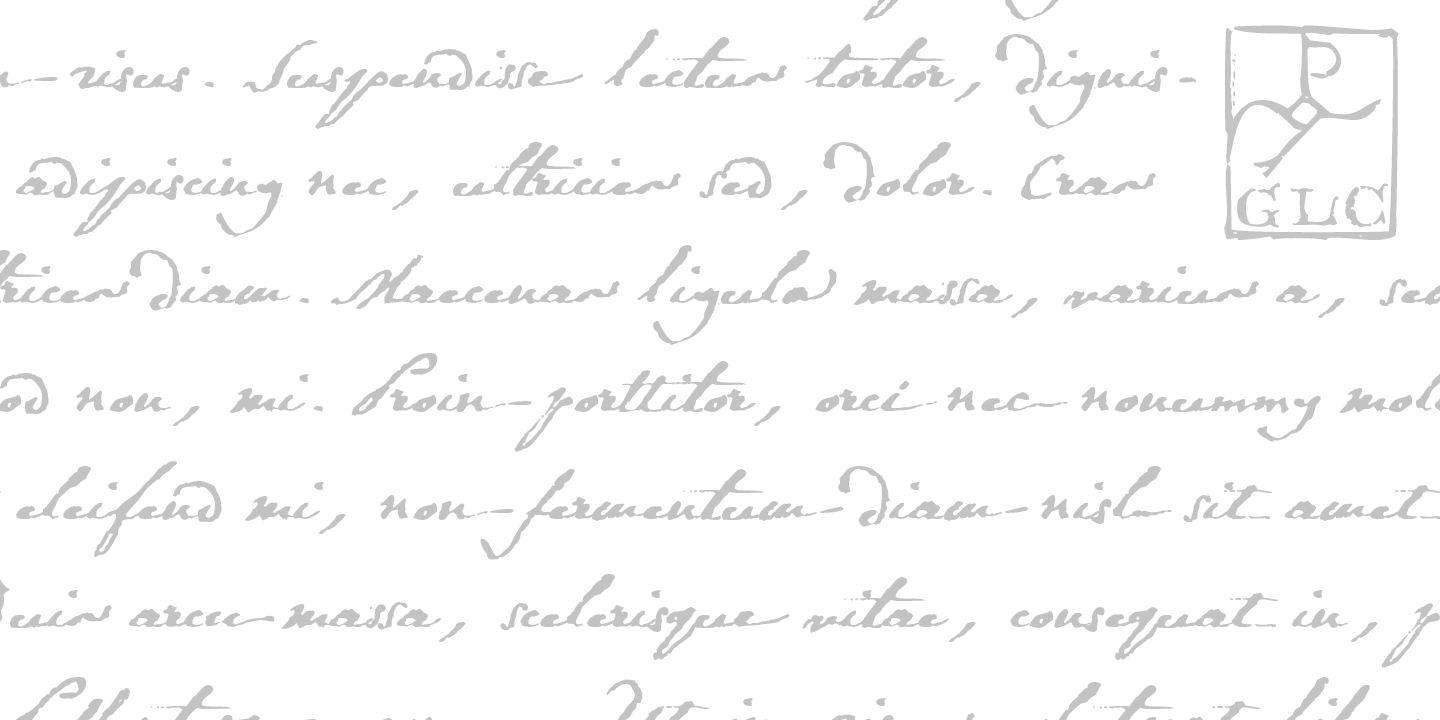 risus. Suspendisse lectus tortor, dignis-
adipiscing nec, ultricies sed, dolor. Cras
GLC
diam. Maecenas ligula massa, varius a,
non, mi. Proin porttitor, orci nec nonummy
eleifend mi, non fermentum diam nisl sit amet
arcu massa, scelerisque vitae, consequat in,